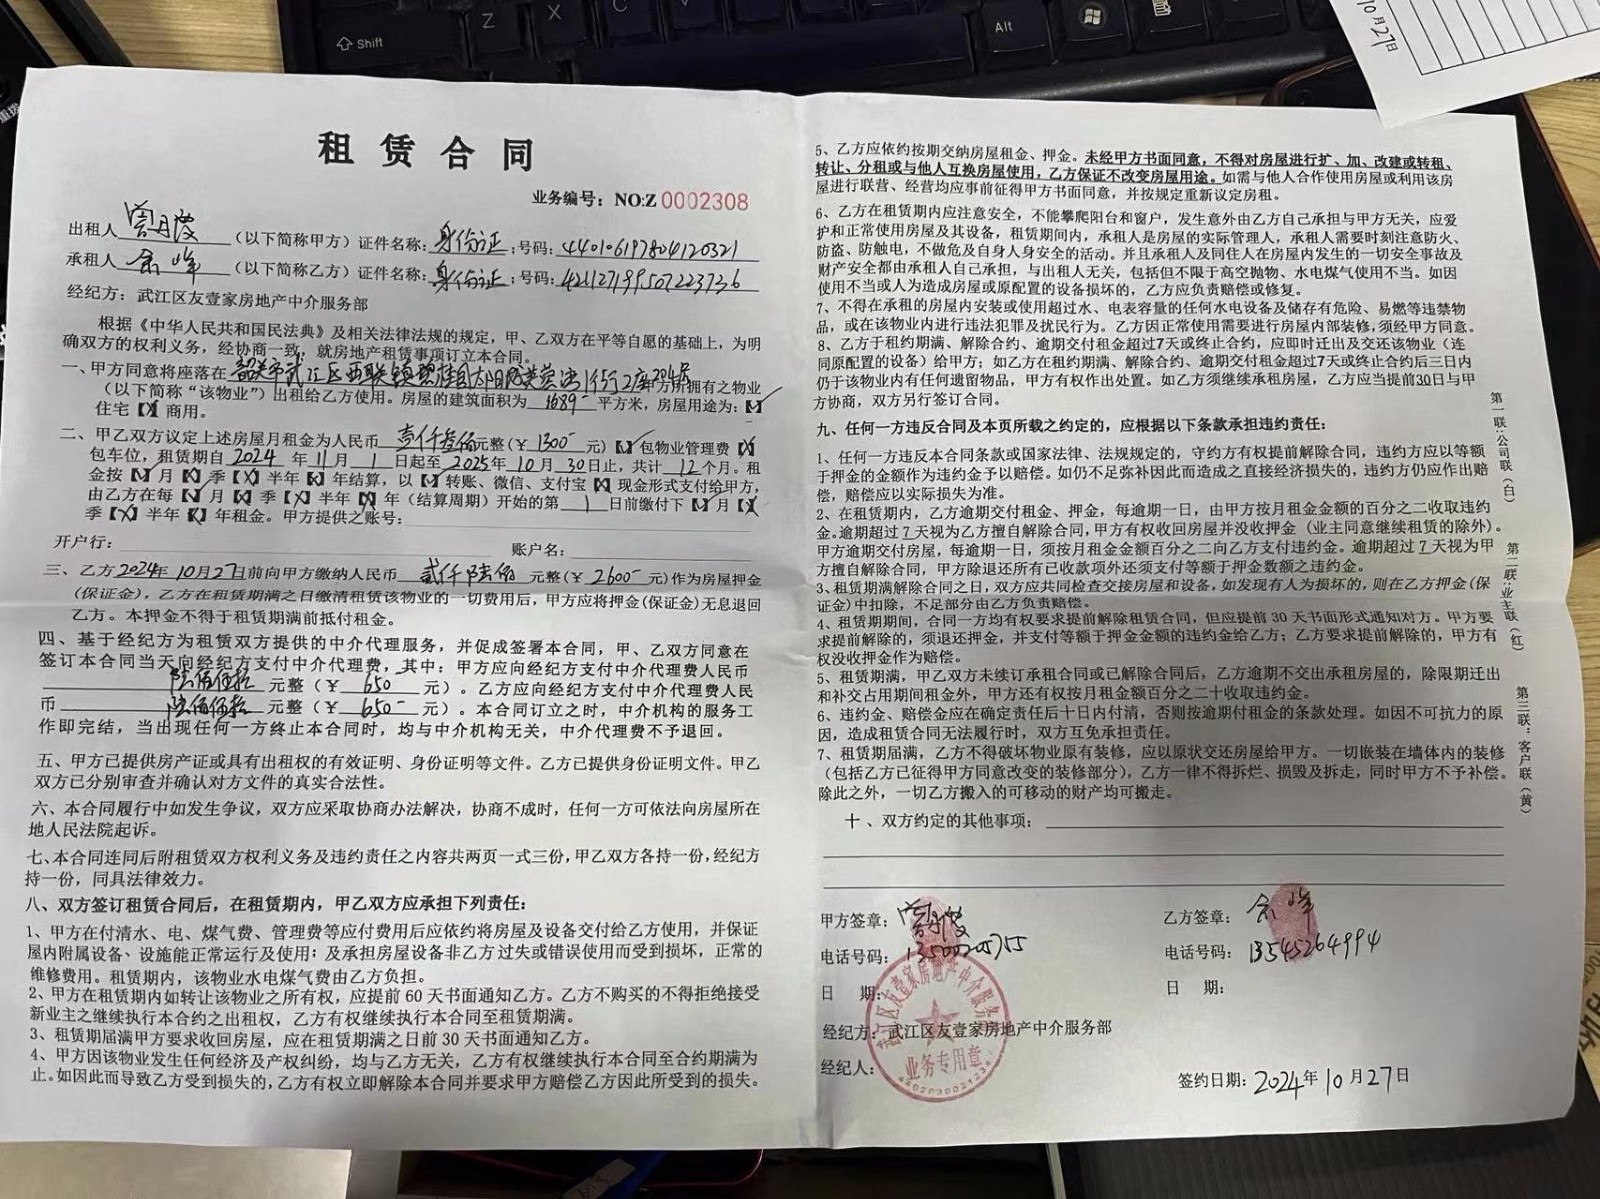 Shift
Z
X
C
V
Alt
10月27日
租赁合同
业务编号：NO:Z 0002308
出租人 （以下简称甲方）证件名称：身份证；号码：440106197804120321
承租人 余峰 （以下简称乙方）证件名称：身份证；号码：421127199507223736
经纪方：武江区友壹家房地产中介服务部
根据《中华人民共和国民法典》及相关法律法规的规定，甲、乙双方在平等自愿的基础上，为明
确双方的权利义务，经协商一致，就房地产租赁事项订立本合同。
一、甲方同意将座落在 韶关市武江区西联镇碧桂园太阳城 2座204房 甲方所拥有之物业
（以下简称“该物业”）出租给乙方使用。房屋的建筑面积为 平方米，房屋用途为：【✓】
住宅【X】商用。
二、甲乙双方议定上述房屋月租金为人民币 壹仟叁佰 元整（￥ 1300 元）【✓】包物业管理费【X】
包车位，租赁期自 2024 年 11 月 1 日起至 2025 年 10 月 30 日止，共计 12 个月。租
金按【✓】月【X】季【X】半年【X】年结算，以【✓】转账、微信、支付宝【X】现金形式支付给甲方，
由乙方在每【✓】月【X】季【X】半年【X】年（结算周期）开始的第 1 日前缴付下【✓】月【X】
季【X】半年【X】年租金。甲方提供之账号：
开户行： 账户名：
三、乙方 2024年 10月27日前向甲方缴纳人民币 贰仟陆佰 元整（￥ 2600 元）作为房屋押金
(保证金)，乙方在租赁期满之日缴清租赁该物业的一切费用后，甲方应将押金(保证金)无息退回
乙方。本押金不得于租赁期满前抵付租金。
四、基于经纪方为租赁双方提供的中介代理服务，并促成签署本合同，甲、乙双方同意在
签订本合同当天向经纪方支付中介代理费，其中：甲方应向经纪方支付中介代理费人民币
陆佰伍拾 元整（￥ 650 元）。乙方应向经纪方支付中介代理费人民
币 陆佰伍拾 元整（￥ 650 元）。本合同订立之时，中介机构的服务工
作即完结，当出现任何一方终止本合同时，均与中介机构无关，中介代理费不予退回。
五、甲方已提供房产证或具有出租权的有效证明、身份证明等文件。乙方已提供身份证明文件。甲乙
双方已分别审查并确认对方文件的真实合法性。
六、本合同履行中如发生争议，双方应采取协商办法解决，协商不成时，任何一方可依法向房屋所在
地人民法院起诉。
七、本合同连同后附租赁双方权利义务及违约责任之内容共两页一式三份，甲乙双方各持一份，经纪方
持一份，同具法律效力。
八、双方签订租赁合同后，在租赁期内，甲乙双方应承担下列责任：
1、甲方在付清水、电、煤气费、管理费等应付费用后应依约将房屋及设备交付给乙方使用，并保证
屋内附属设备、设施能正常运行及使用：及承担房屋设备非乙方过失或错误使用而受到损坏，正常的
维修费用。租赁期内，该物业水电煤气费由乙方负担。
2、甲方在租赁期内如转让该物业之所有权，应提前 60 天书面通知乙方。乙方不购买的不得拒绝接受
新业主之继续执行本合约之出租权，乙方有权继续执行本合同至租赁期满。
3、租赁期届满甲方要求收回房屋，应在租赁期满之日前 30 天书面通知乙方。
4、甲方因该物业发生任何经济及产权纠纷，均与乙方无关，乙方有权继续执行本合同至合约期满为
止。如因此而导致乙方受到损失的，乙方有权立即解除本合同并要求甲方赔偿乙方因此所受到的损失。
5、乙方应依约按期交纳房屋租金、押金。未经甲方书面同意，不得对房屋进行扩、加、改建或转租、
转让、分租或与他人互换房屋使用，乙方保证不改变房屋用途。如需与他人合作使用房屋或利用该房
屋进行联营、经营均应事前征得甲方书面同意，并按规定重新议定房租。
6、乙方在租赁期内应注意安全，不能攀爬阳台和窗户，发生意外由乙方自己承担与甲方无关，应爱
护和正常使用房屋及其设备，租赁期间内，承租人是房屋的实际管理人，承租人需要时刻注意防火、
防盗、防触电，不做危及自身人身安全的活动。并且承租人及同住人在房屋内发生的一切安全事故及
财产安全都由承租人自己承担，与出租人无关，包括但不限于高空抛物、水电煤气使用不当。如因
使用不当或人为造成房屋或原配置的设备损坏的，乙方应负责赔偿或修复。
7、不得在承租的房屋内安装或使用超过水、电表容量的任何水电设备及储存有危险、易燃等违禁物
品，或在该物业内进行违法犯罪及扰民行为。乙方因正常使用需要进行房屋内部装修，须经甲方同意。
8、乙方于租约期满、解除合约、逾期交付租金超过7天或终止合约，应即时迁出及交还该物业（连
同原配置的设备）给甲方；如乙方在租约期满、解除合约、逾期交付租金超过7天或终止合约后三日内
仍于该物业内有任何遗留物品，甲方有权作出处置。如乙方须继续承租房屋，乙方应当提前30日与甲
方协商，双方另行签订合同。
九、任何一方违反合同及本页所载之约定的，应根据以下条款承担违约责任：
1、任何一方违反本合同条款或国家法律、法规规定的，守约方有权提前解除合同，违约方应以等额
于押金的金额作为违约金予以赔偿。如仍不足弥补因此而造成之直接经济损失的，违约方仍应作出赔
偿，赔偿应以实际损失为准。
2、在租赁期内，乙方逾期交付租金、押金，每逾期一日，由甲方按月租金金额的百分之二收取违约
金。逾期超过 7 天视为乙方擅自解除合同，甲方有权收回房屋并没收押金（业主同意继续租赁的除外）。
甲方逾期交付房屋，每逾期一日，须按月租金金额百分之二向乙方支付违约金。逾期超过 7 天视为甲
方擅自解除合同，甲方除退还所有已收款项外还须支付等额于押金数额之违约金。
3、租赁期满解除合同之日，双方应共同检查交接房屋和设备，如发现有人为损坏的，则在乙方押金(保
证金)中扣除，不足部分由乙方负责赔偿。
4、租赁期期间，合同一方均有权要求提前解除租赁合同，但应提前 30 天书面形式通知对方。甲方要
求提前解除的，须退还押金，并支付等额于押金金额的违约金给乙方；乙方要求提前解除的，甲方有
权没收押金作为赔偿。
5、租赁期满，甲乙双方未续订承租合同或已解除合同后，乙方逾期不交出承租房屋的，除限期迁出
和补交占用期间租金外，甲方还有权按月租金额百分之二十收取违约金。
6、违约金、赔偿金应在确定责任后十日内付清，否则按逾期付租金的条款处理。如因不可抗力的原
因，造成租赁合同无法履行时，双方互免承担责任。
7、租赁期届满，乙方不得破坏物业原有装修，应以原状交还房屋给甲方。一切嵌装在墙体内的装修
（包括乙方已征得甲方同意改变的装修部分），乙方一律不得拆烂、损毁及拆走，同时甲方不予补偿。
除此之外，一切乙方搬入的可移动的财产均可搬走。
十、双方约定的其他事项：
第一联：公司联（白）
第二联：业主联（红）
第三联：客户联（黄）
甲方签章： 乙方签章：余峰
电话号码： 电话号码：13545264994
日 期： 日 期：
经纪方：武江区友壹家房地产中介服务部
经纪人：
武江区友壹家房地产中介服务部
业务专用章
签约日期：2024年10月27日